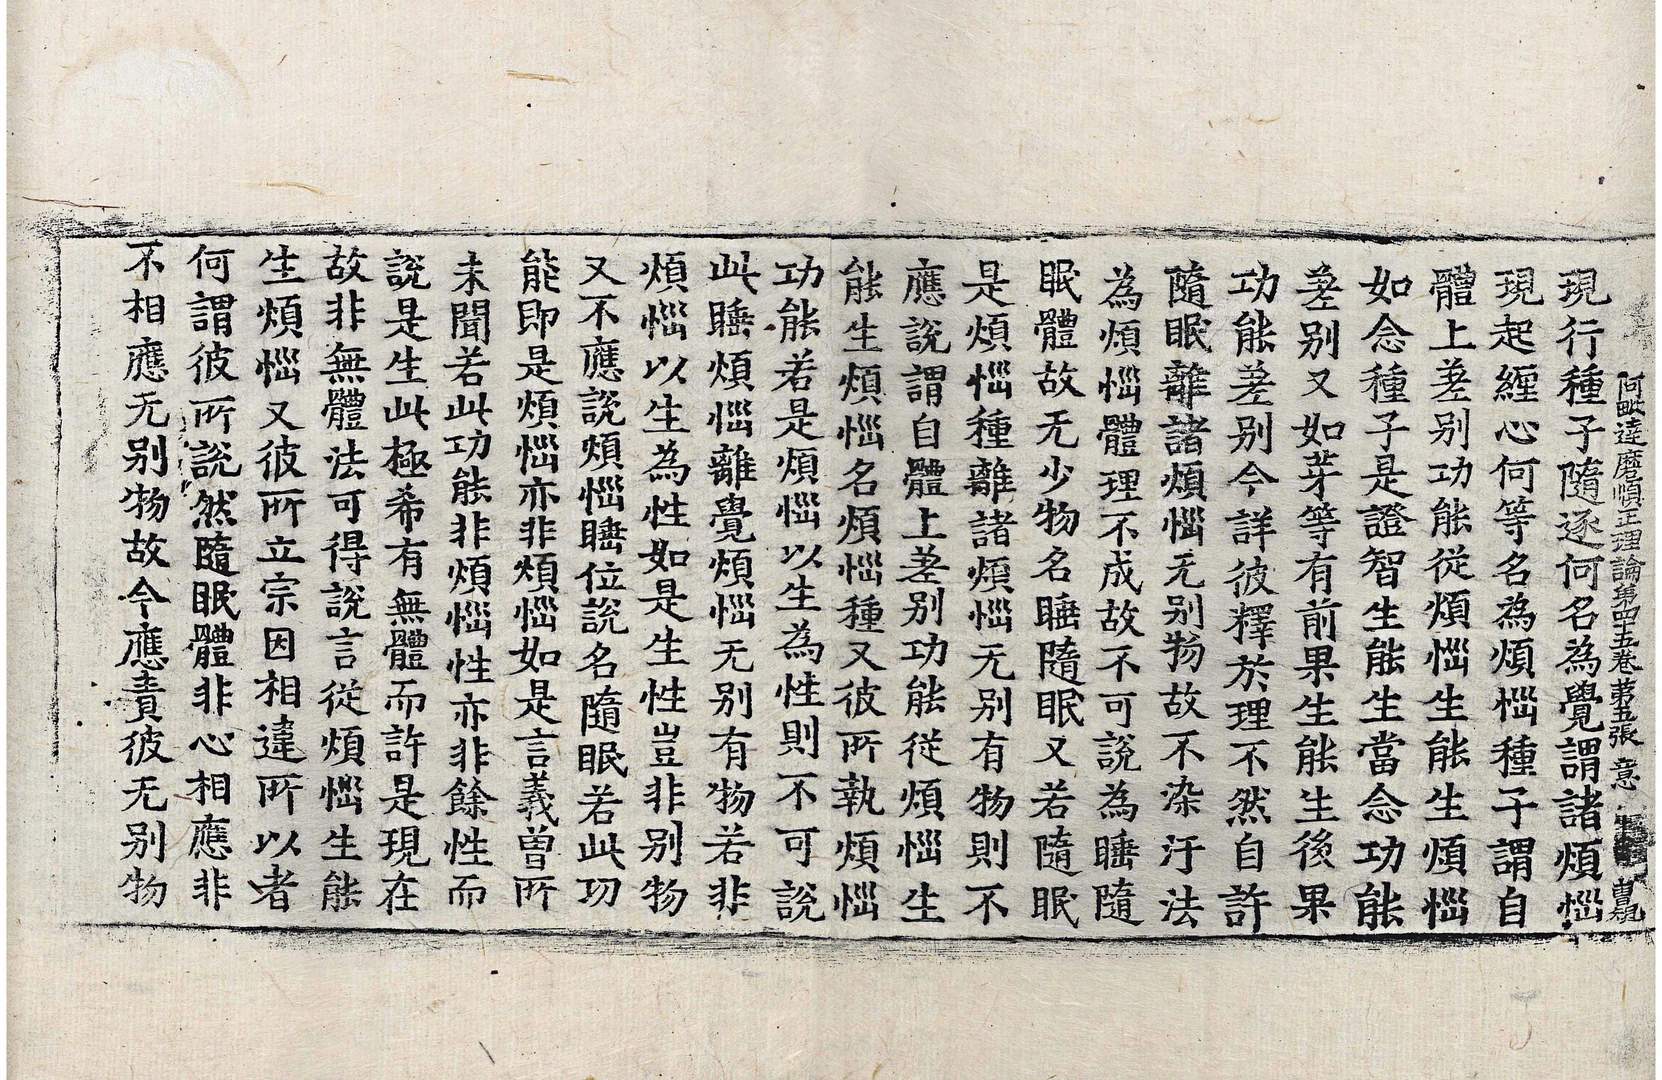 阿毗達磨順正理論第四十五卷第五張 意
現行種子隨逐何名為覺謂諸煩惱
現起纏心何等名為煩惱種子謂自
體上差别功能從煩惱生能生煩惱
如念種子是證智生能生當念功能
差别又如芽等有前果生能生後果
功能差别今詳彼釋於理不然自許
隨眠離諸煩惱无别物故不染汙法
為煩惱體理不成故不可說為睡隨
眠體故无少物名睡隨眠又若隨眠
是煩惱種離諸煩惱无别有物則不
應說謂自體上差别功能從煩惱生
能生煩惱名煩惱種又彼所執煩惱
功能若是煩惱以生為性則不可說
此睡煩惱離覺煩惱无别有物若非
煩惱以生為性如是生性豈非别物
又不應說煩惱睡位說名隨眠若此功
能即是煩惱亦非煩惱如是言義曾所
未聞若此功能非煩惱性亦非餘性而
說是生此極希有無體而許是現在
故非無體法可得說言從煩惱生能
生煩惱又彼所立宗因相違所以者
何謂彼所說然隨眠體非心相應非
不相應无别物故今應責彼无别物